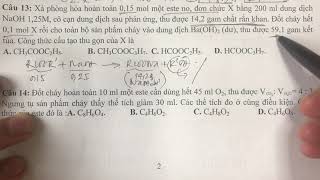 Câu 13: Xà phòng hóa hoàn toàn 0,15 mol một este no, đơn chức X bằng 200 ml dung dịch
NaOH 1,25M, cô cạn dung dịch sau phản ứng, thu được 14,2 gam chất rắn khan. Đốt cháy hết
0,1 mol X rồi cho toàn bộ sản phẩm cháy vào dung dịch Ba(OH)₂ (dư), thu được 59,1 gam kết
tủa. Công thức cấu tạo thu gọn của X là
A. CH₃COOC₂H₅. B. CH₃COOC₂H₅. C. HCOOC₂H₅. D. HCOOC₃H₇.
0,15 0,25
Câu 14: Đốt cháy hoàn toàn 10 ml một este cần dùng hết 45 ml O₂, thu được
Ngưng tụ sản phẩm cháy thấy thể tích giảm 30 ml. Các thể tích đo ở cùng điều kiện. C
thức este đó là : A. C₈H₆O₄. B. C₄H₈O₂. C. C₄H₆O₂. D. C
2